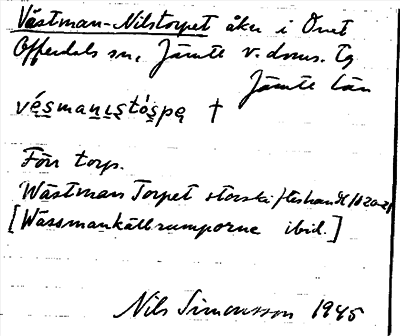 Västman-Nilstorpet åker i Önet
Offerdals sn, Jämtl v. doms. Tg
Jämtl län
vésmanıstóspe †
Förr torp.
Wästman Torpet storsk
[Wässmankällrumporne ibid.]
Nils Simonsson 1945